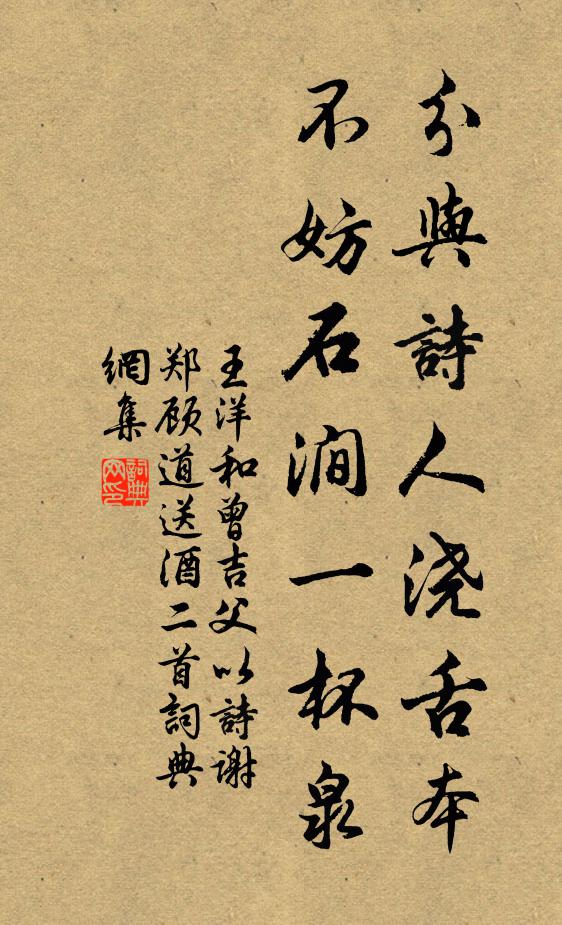 分與詩人浇舌本
不妨石澗一杯泉
王洋和曾吉父以詩谢
郑顾道送酒二首詞典
網集
詞典網印